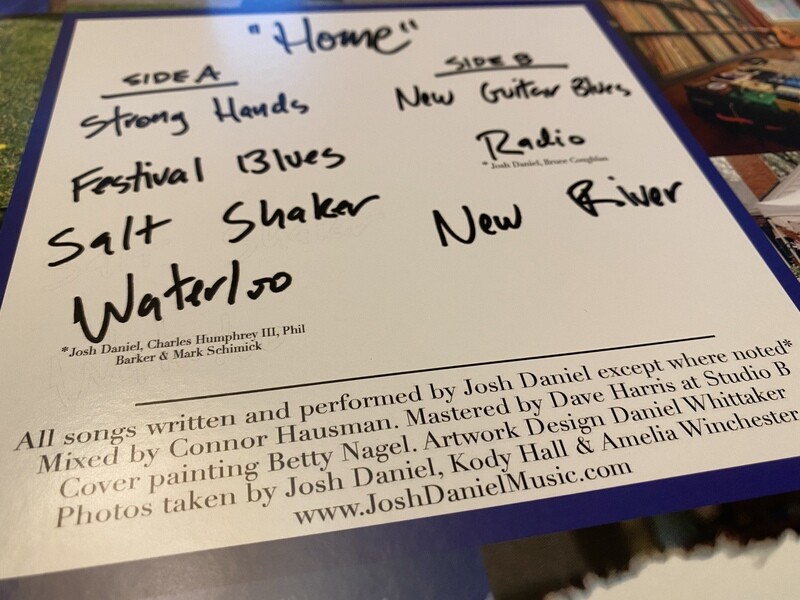 "Home"
SIDE A
Strong Hands
Festival Blues
Salt Shaker
Waterloo
*Josh Daniel, Charles Humphrey III, Phil
Barker & Mark Schimick
SIDE B
New Guitar Blues
Radio
*Josh Daniel, Bruce Coughlan
New River
All songs written and performed by Josh Daniel except where noted*
Mixed by Connor Hausman. Mastered by Dave Harris at Studio B
Cover painting Betty Nagel. Artwork Design Daniel Whittaker
Photos taken by Josh Daniel, Kody Hall & Amelia Winchester
www.JoshDanielMusic.com